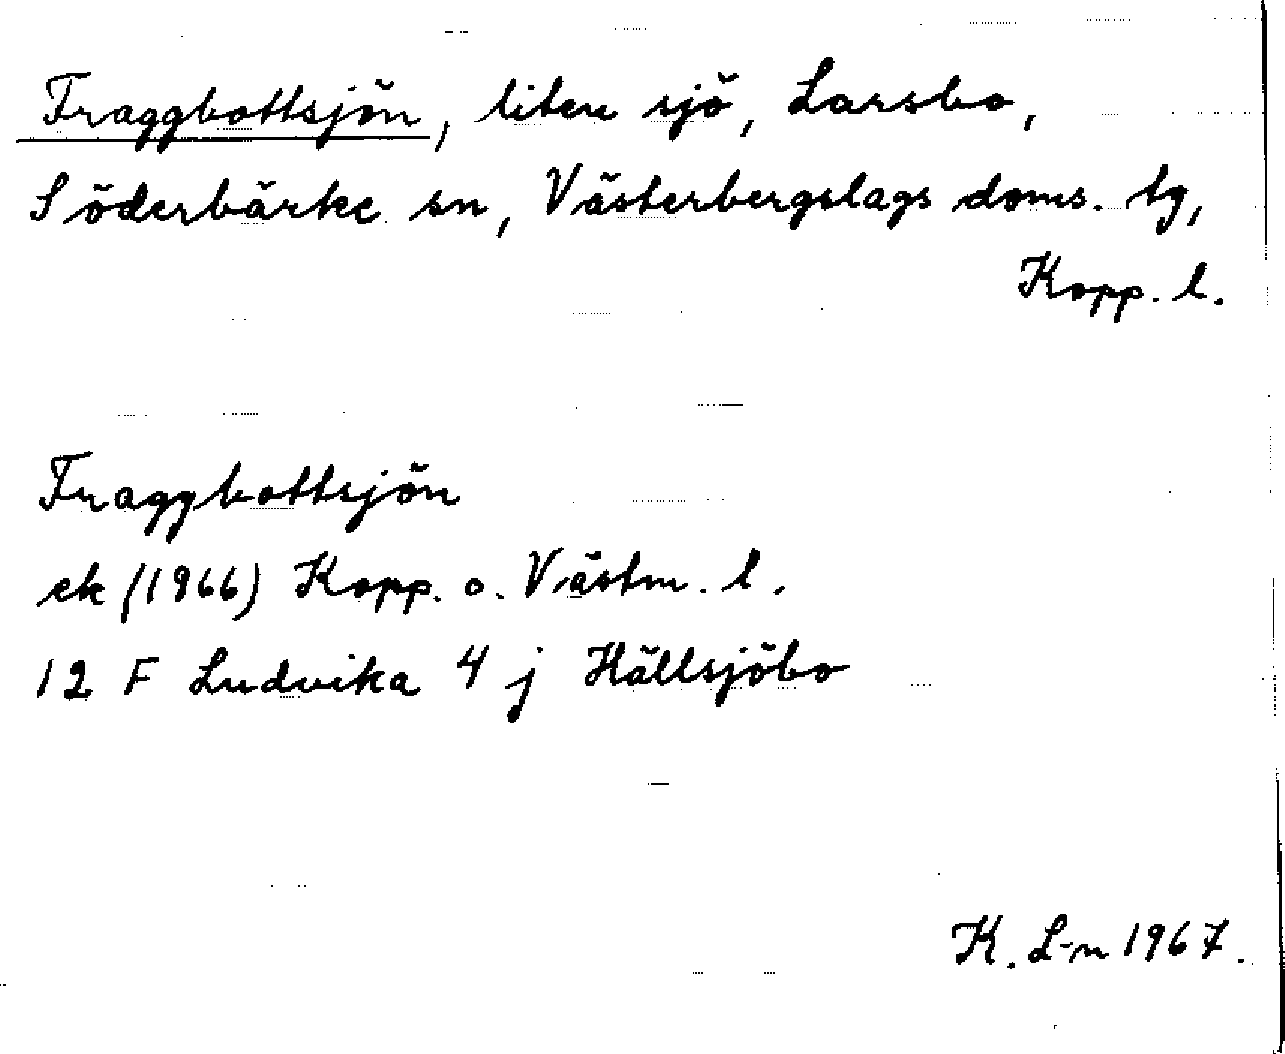 Fraggbottsjön, liten sjö, Larsbo,
Söderbärke sn, Västerbergslags doms. tg,
Kopp. l.
Fraggbottsjön
ek (1966) Kopp. o. Västm. l.
12 F Ludvika 4 j Hällsjöbo
K. L-n 1967.